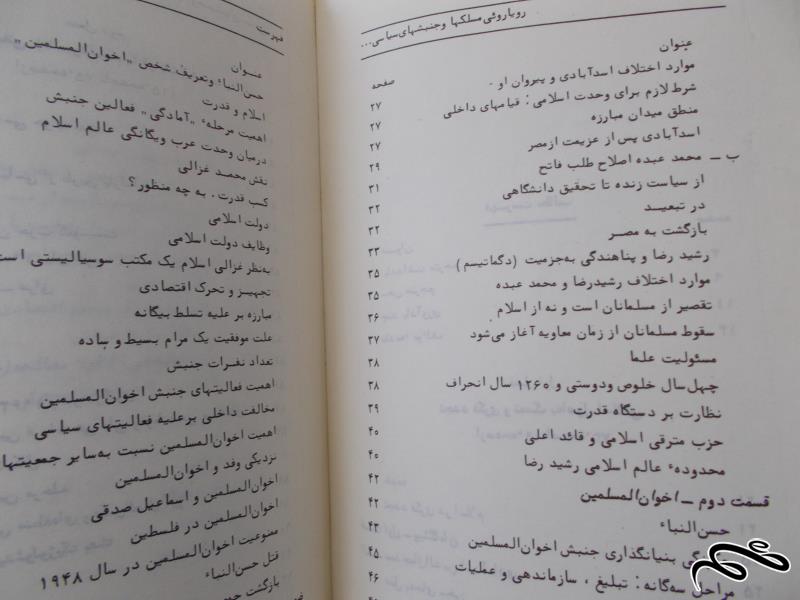 رویاروئی مسلکها وجنبشهای سیاسی...
عنوان
صفحه
موارد اختلاف اسدآبادی و پیروان او - ۲۷
شرط لازم برای وحدت اسلامی: قیامهای داخلی ۲۷
منطق میدان مبارزه ۲۷
اسدآبادی پس از عزیمت ازمصر ۲۹
ب — محمد عبده اصلاح طلب فاتح ۳۱
از سیاست زنده تا تحقیق دانشگاهی ۳۲
در تبعیـد ۳۲
بازگشت به مصـر ۳۳
رشید رضا و پناهندگی به‌جزمیت (دگماتیسم) ۳۵
موارد اختلاف رشیدرضا و محمد عبده ۳۵
تقصیر از مسلمانان است و نه از اسلام ۳۶
سقوط مسلمانان از زمان معاویه آغاز می‌شود ۳۷
مسئولیت علما ۳۸
چهل‌سال خلوص ودوستی و ۱۲۶۰ سال انحراف ۳۸
نظارت بر دستگاه قدرت ۳۹
حزب مترقی اسلامی و قائد اعلی ۴۰
محدودهء عالم اسلامی رشید رضا ۴۰
قسمت دوم — اخوان‌المسلمین ۴۲
حسن‌البناء ۴۲
بنیانگذاری جنبش اخوان‌المسلمین ۴۳
مراحل سه‌گانه: تبلیغ، سازماندهی و عملیات ۴۵
۴۶
فهرست
عنـوان
حسن‌البناء وتعریف شخص "اخوان‌المسلمین"
اسلام و قدرت
اهمیت مرحلهء "آمادگی" فعالین جنبش
درمیان وحدت عرب ویگانگی عالم اسلام
نقش محمـد غزالی
کسب قدرت. به چه منظور؟
دولت اسلامی
وظایف دولت اسلامی
به‌نظر غزالی اسلام یک مکتب سوسیالیستی است
تجهیـز و تحرک اقتصادی
مبارزه بر علیه تسلط بیگانه
علت موفقیت یک مرام بسیط و ساده
تعداد نفـرات جنبش
اهمیت فعالیتهای جنبش اخوان‌المسلمین
مخالفت داخلی برعلیه فعالیتهای سیاسی
اهمیت اخوان‌المسلمین نسبت به‌سایر جمعیتها
نزدیکی وفد و اخوان‌المسلمین
اخوان‌المسلمین و اسماعیل صدقی
اخوان‌المسلمین در فلسطین
ممنوعیت اخوان‌المسلمین در سال ۱۹۴۸
قتل حسن‌البناء
بازگشت